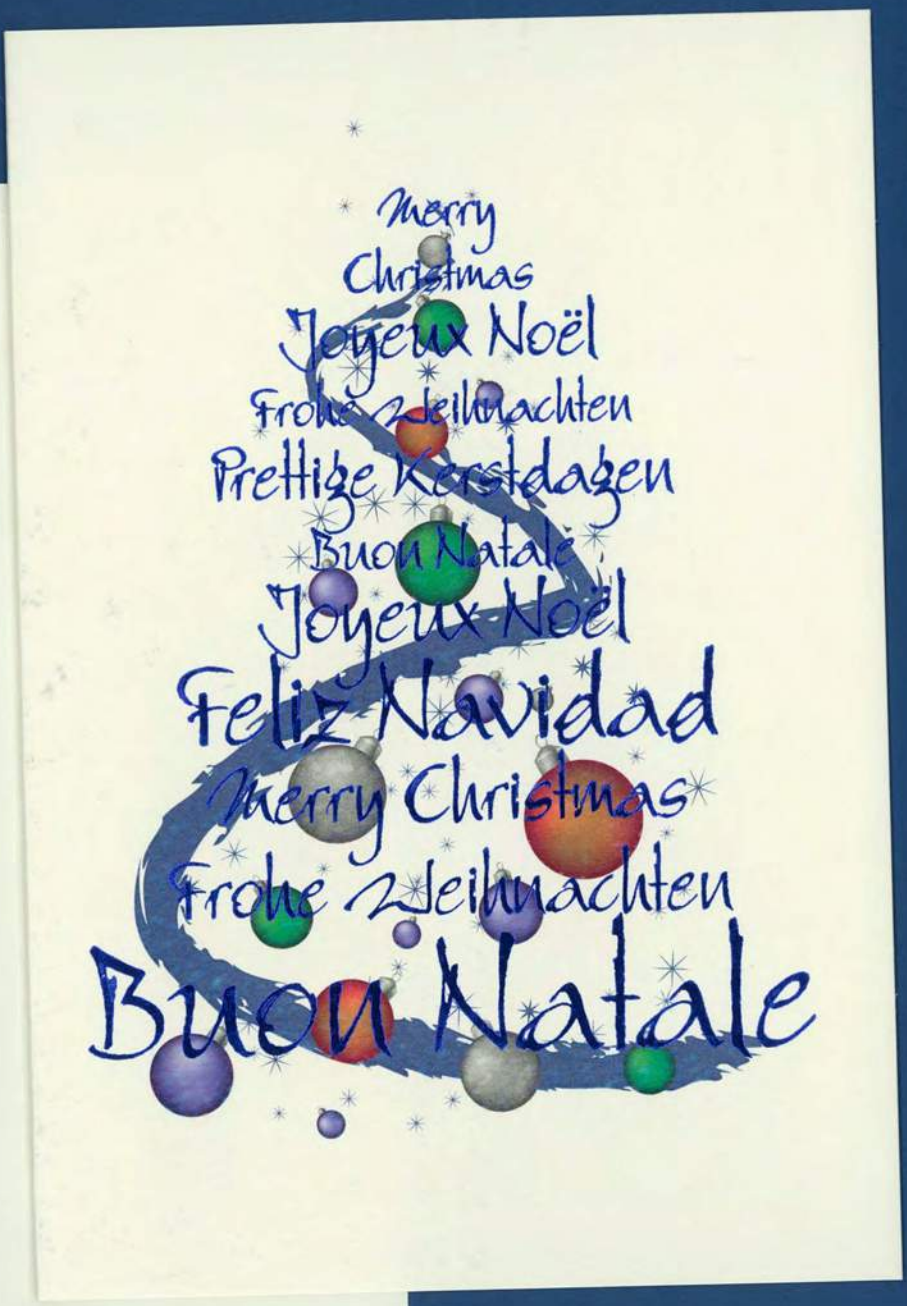 Merry
Christmas
Joyeux Noël
Frohe Weihnachten
Prettige Kerstdagen
Buon Natale
Joyeux Noël
Feliz Navidad
Merry Christmas
Frohe Weihnachten
Buon Natale